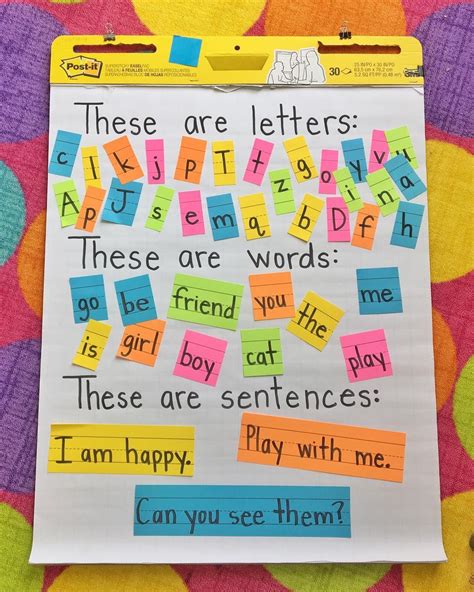 Post-it
30
25 IN/PO x 30 IN/PO
63,5 cm x 76,2 cm
These are letters:
c l k j p T t z g o y v u
A p J s e m q b b D i f n h a
These are words:
go be friend you the me
is girl boy cat play
These are sentences:
I am happy. Play with me.
Can you see them?